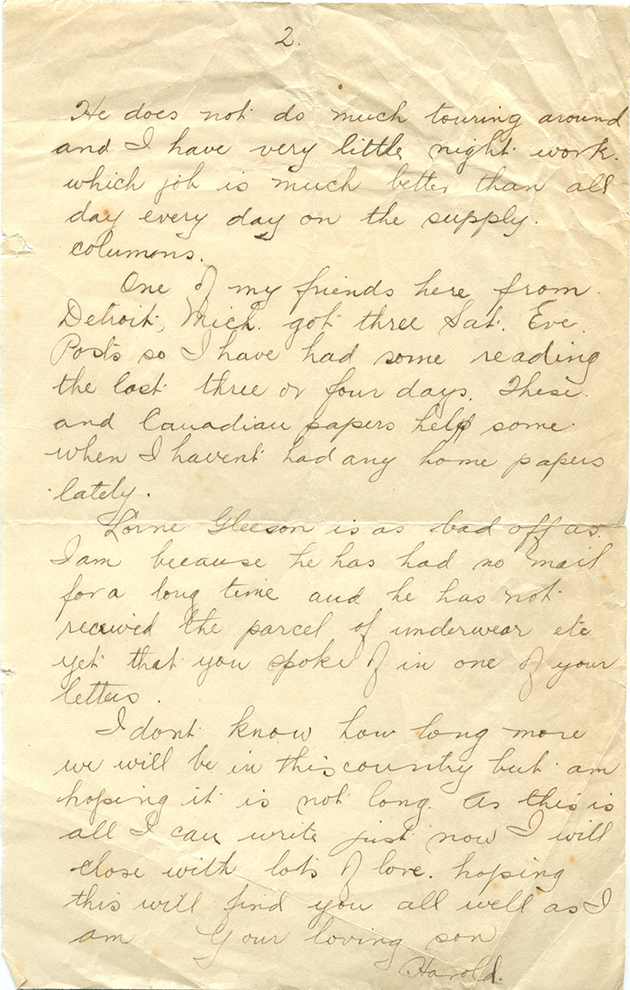 2.
He does not do much touring around
and I have very little night work.
which job is much better than all
day every day on the supply.
columns.
One of my friends here from.
Detroit, Mich. got three Sat. Eve.
Posts so I have had some reading
the last three or four days. These.
and Canadian papers help some.
when I havent had any home papers
lately.
Lorne Gleeson is as bad off as.
I am because he has had no mail
for a long time and he has not
received the parcel of underwear etc
yet that you spoke of in one of your
letters.
I dont know how long more
we will be in this country but am
hoping it is not long. As this is
all I can write just now I will
close with lots of love. hoping
this will find you all well as I
am Your loving son
Harold.